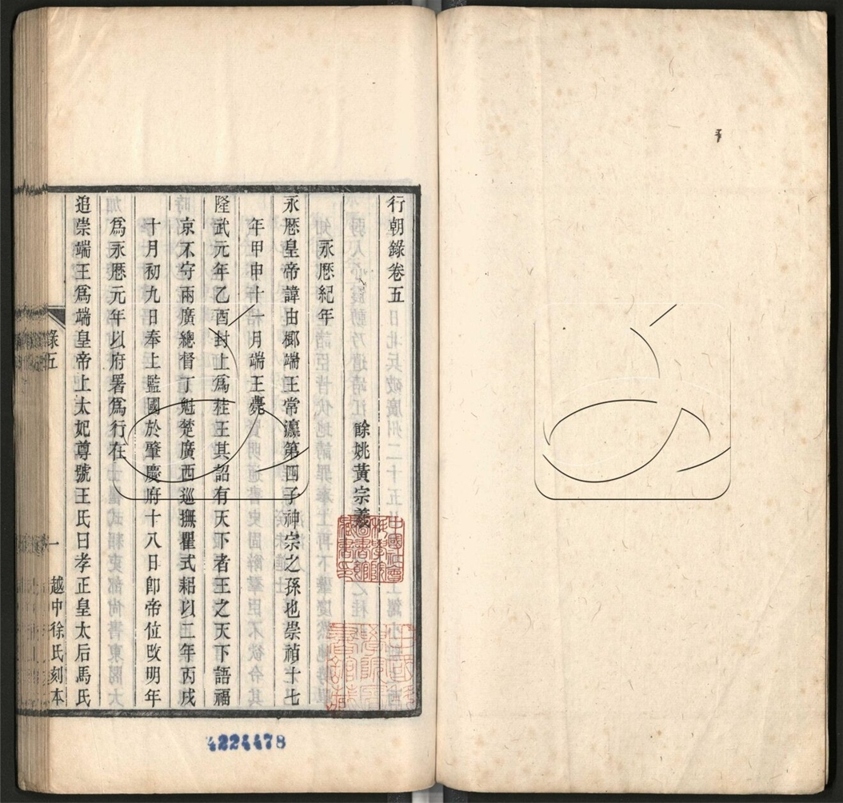 行朝錄卷五
餘姚黃宗羲
永厯紀年
永厯皇帝諱由榔端王常瀛第四子神宗之孫也崇禎十七
年甲申十一月端王薨
隆武元年乙酉封上爲桂王其詔有天下者王之天下語福
京不守兩廣總督丁魁楚廣西巡撫瞿式耜以二年丙戌
十月初九日奉上監國於肇慶府十八日卽帝位改明年
爲永厯元年以府署爲行在
追崇端王爲端皇帝上太妃尊號王氏曰孝正皇太后馬氏
錄五
一
越中徐氏刻本
4224478